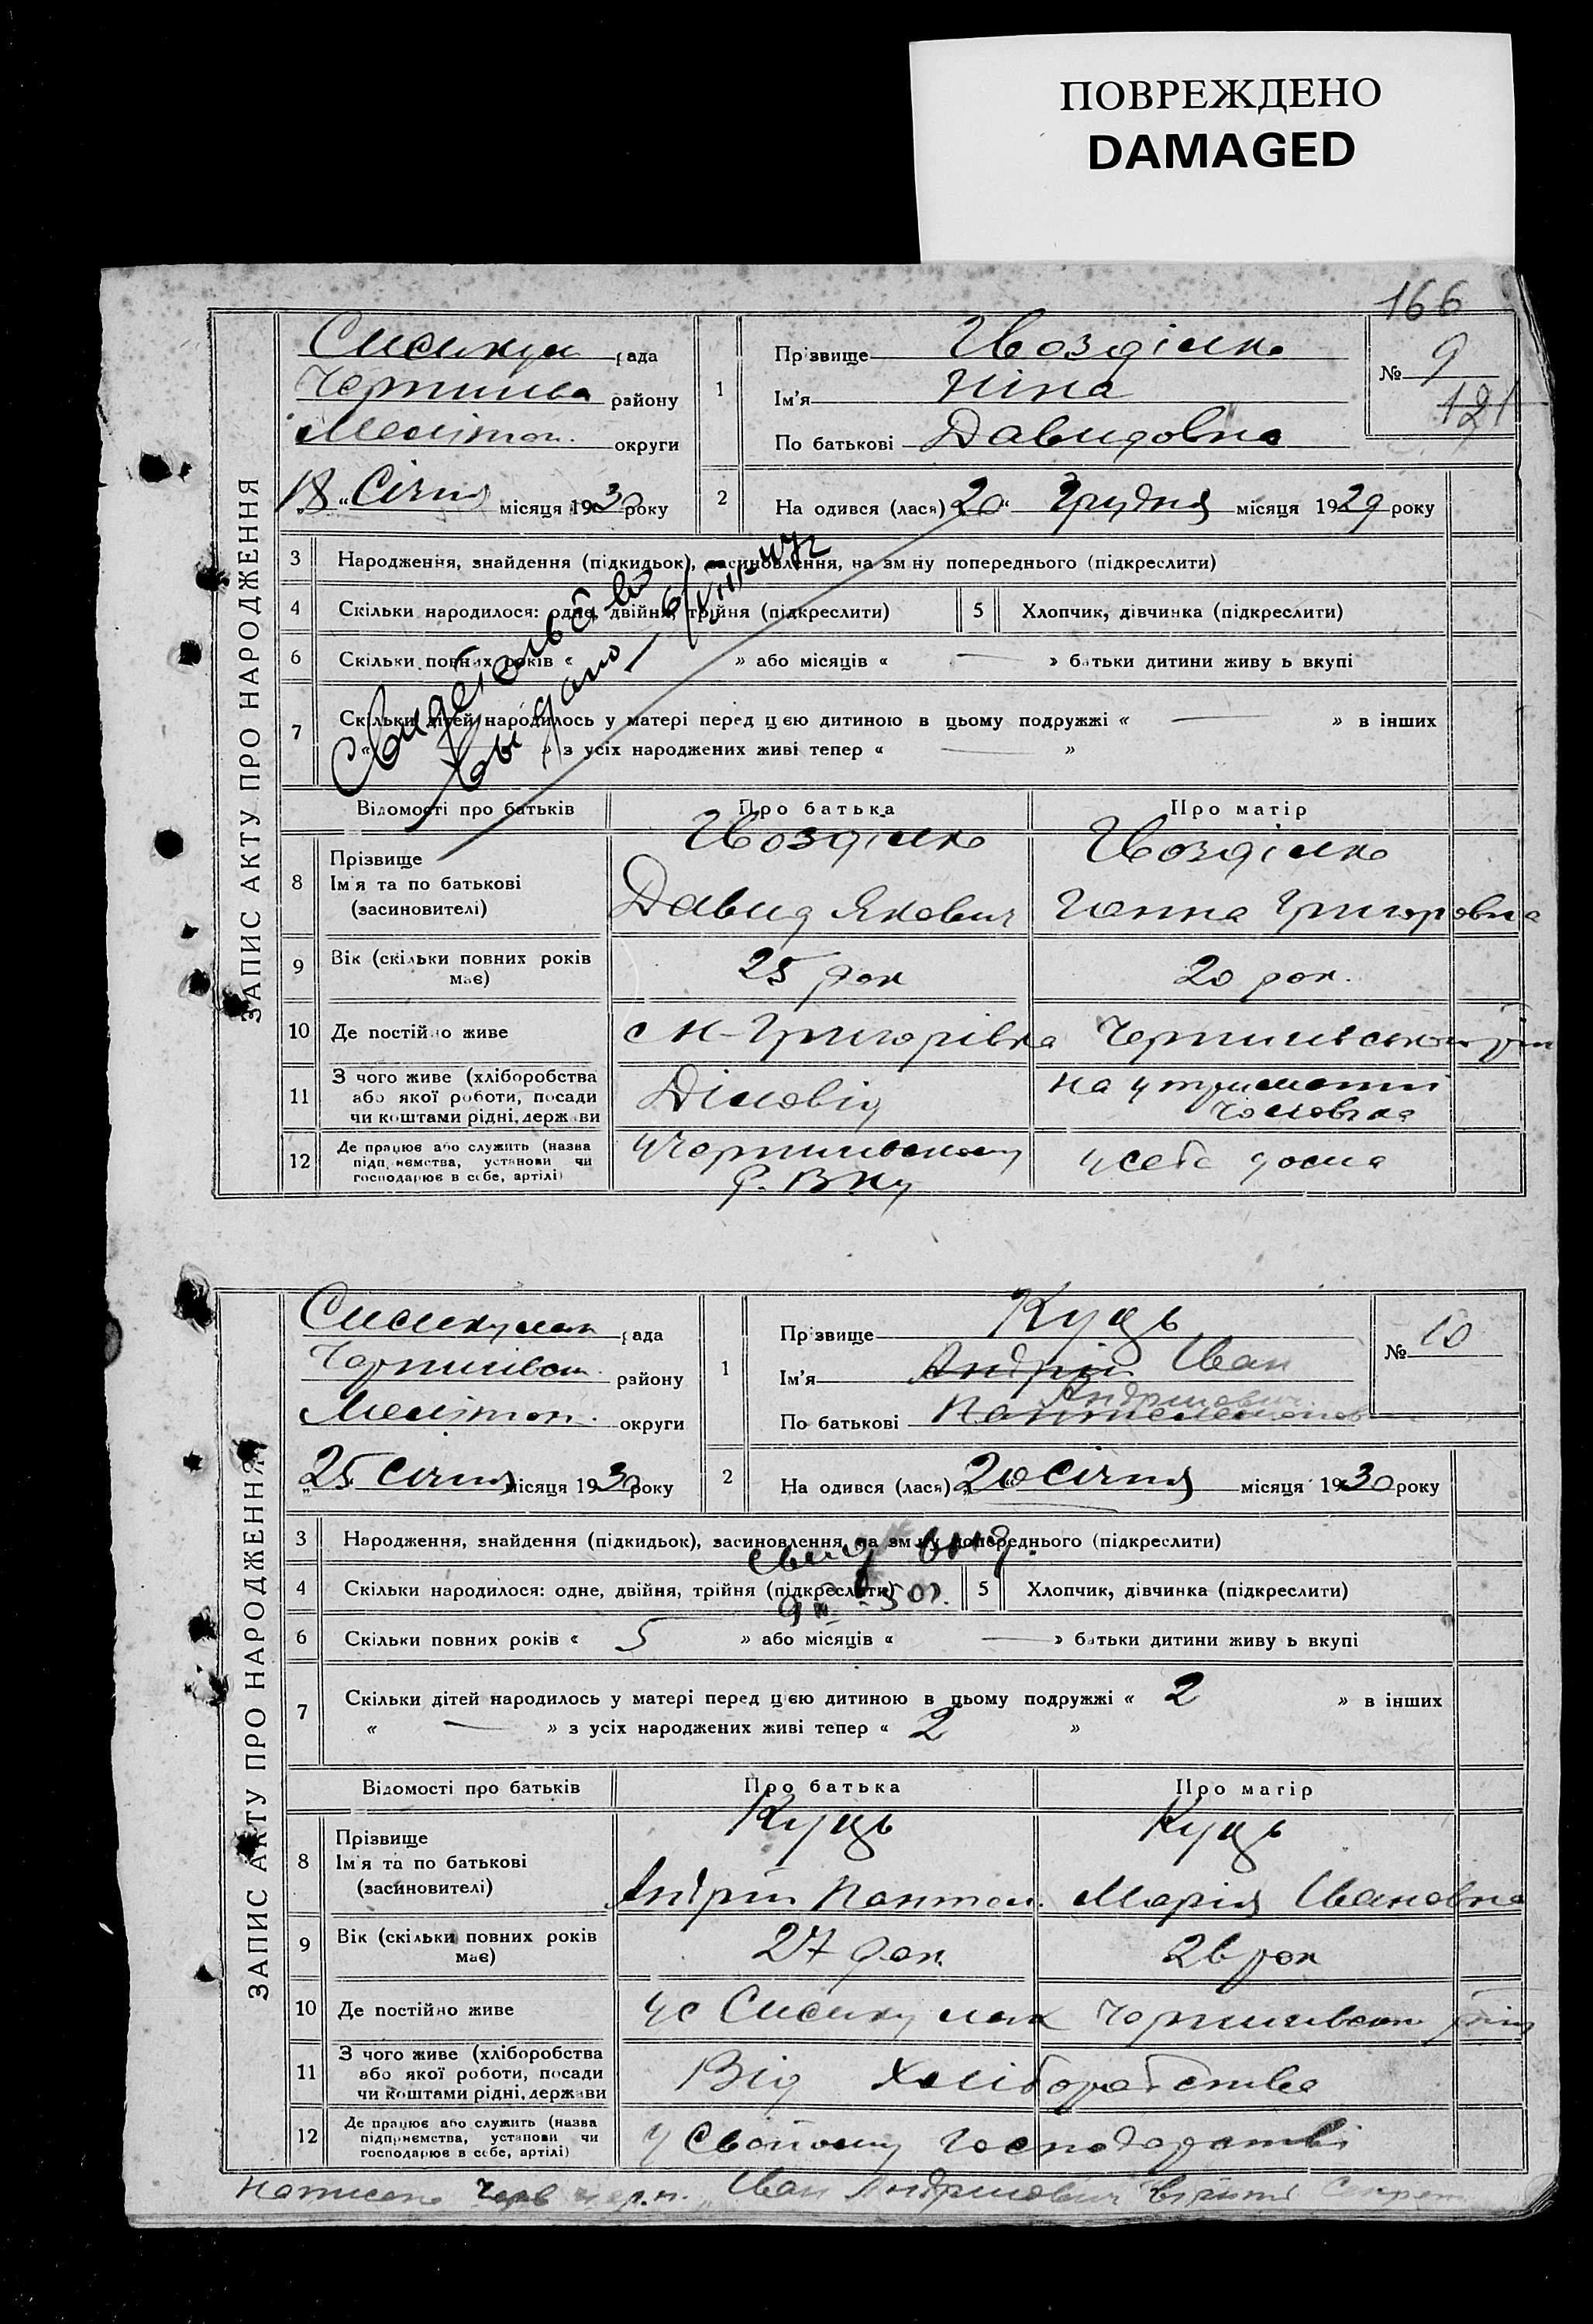 ПОВРЕЖДЕНО
DAMAGED
166
ЗАПИС АКТУ ПРО НАРОДЖЕННЯ
рада
району
Мелітоп. округи
18 „ Січня місяця 1930 року
1
Прізвище Гвозділко
Ім'я Ніна
По батькові Давидовна
№ 9
121
2
На одився (лася) 20 “ Грудня місяця 1929 року
3 Народження, знайдення (підкидьок), засиновлення, на зм ну попереднього (підкреслити)
4 Скільки народилося: одне, двійня, трійня (підкреслити)
5 Хлопчик, дівчинка (підкреслити)
6 Скільки повних років « » або місяців « — » батьки дитини живу ь вкупі
7 Скільки дітей народилось у матері перед цією дитиною в цьому подружжі « — » в інших
« » з усіх народжених живі тепер « — »
Видано
Відомості про батьків
Про батька
Про матір
8 Прізвище
Ім'я та по батькові
(засиновителі)
Гвозділко
Давид Якович
Гвозділко
Ганна Григоровна
9 Вік (скільки повних років
має)
25 рок
20 рок.
10 Де постійно живе
с Н-Григорівка
11 З чого живе (хліборобства
або якої роботи, посади
чи коштами рідні, держави
Діловід
на утриманні
чоловіка
12 Де працює або служить (назва
підприємства, установи чи
господарює в себе, артілі)
Р. ВКу
у себе дома
ЗАПИС АКТУ ПРО НАРОДЖЕННЯ
рада
району
Мелітоп. округи
„25 Січня місяця 1930 року
1
Прізвище Куць
Ім'я Андрій Іван
Андрійович
По батькові
№ 10
2
На одився (лася) „20 Січня місяця 1930 року
3 Народження, знайдення (підкидьок), засиновлення, на зм ну попереднього (підкреслити)
4 Скільки народилося: одне, двійня, трійня (підкреслити)
5 Хлопчик, дівчинка (підкреслити)
6 Скільки повних років « 5 » або місяців « — » батьки дитини живу ь вкупі
7 Скільки дітей народилось у матері перед цією дитиною в цьому подружжі « 2 » в інших
« — » з усіх народжених живі тепер « 2 »
Відомості про батьків
Про батька
Про матір
8 Прізвище
Ім'я та по батькові
(засиновителі)
Куць
Андрій Пантел.
Куць
Марія Івановна
9 Вік (скільки повних років
має)
27 рок.
26 рок
10 Де постійно живе
11 З чого живе (хліборобства
або якої роботи, посади
чи коштами рідні, держави
Від Хліборобства
12 Де працює або служить (назва
підприємства, установи чи
господарює в себе, артілі)
у Своїому Господарстві
Написано
Іван Андрійович вірити Секрет